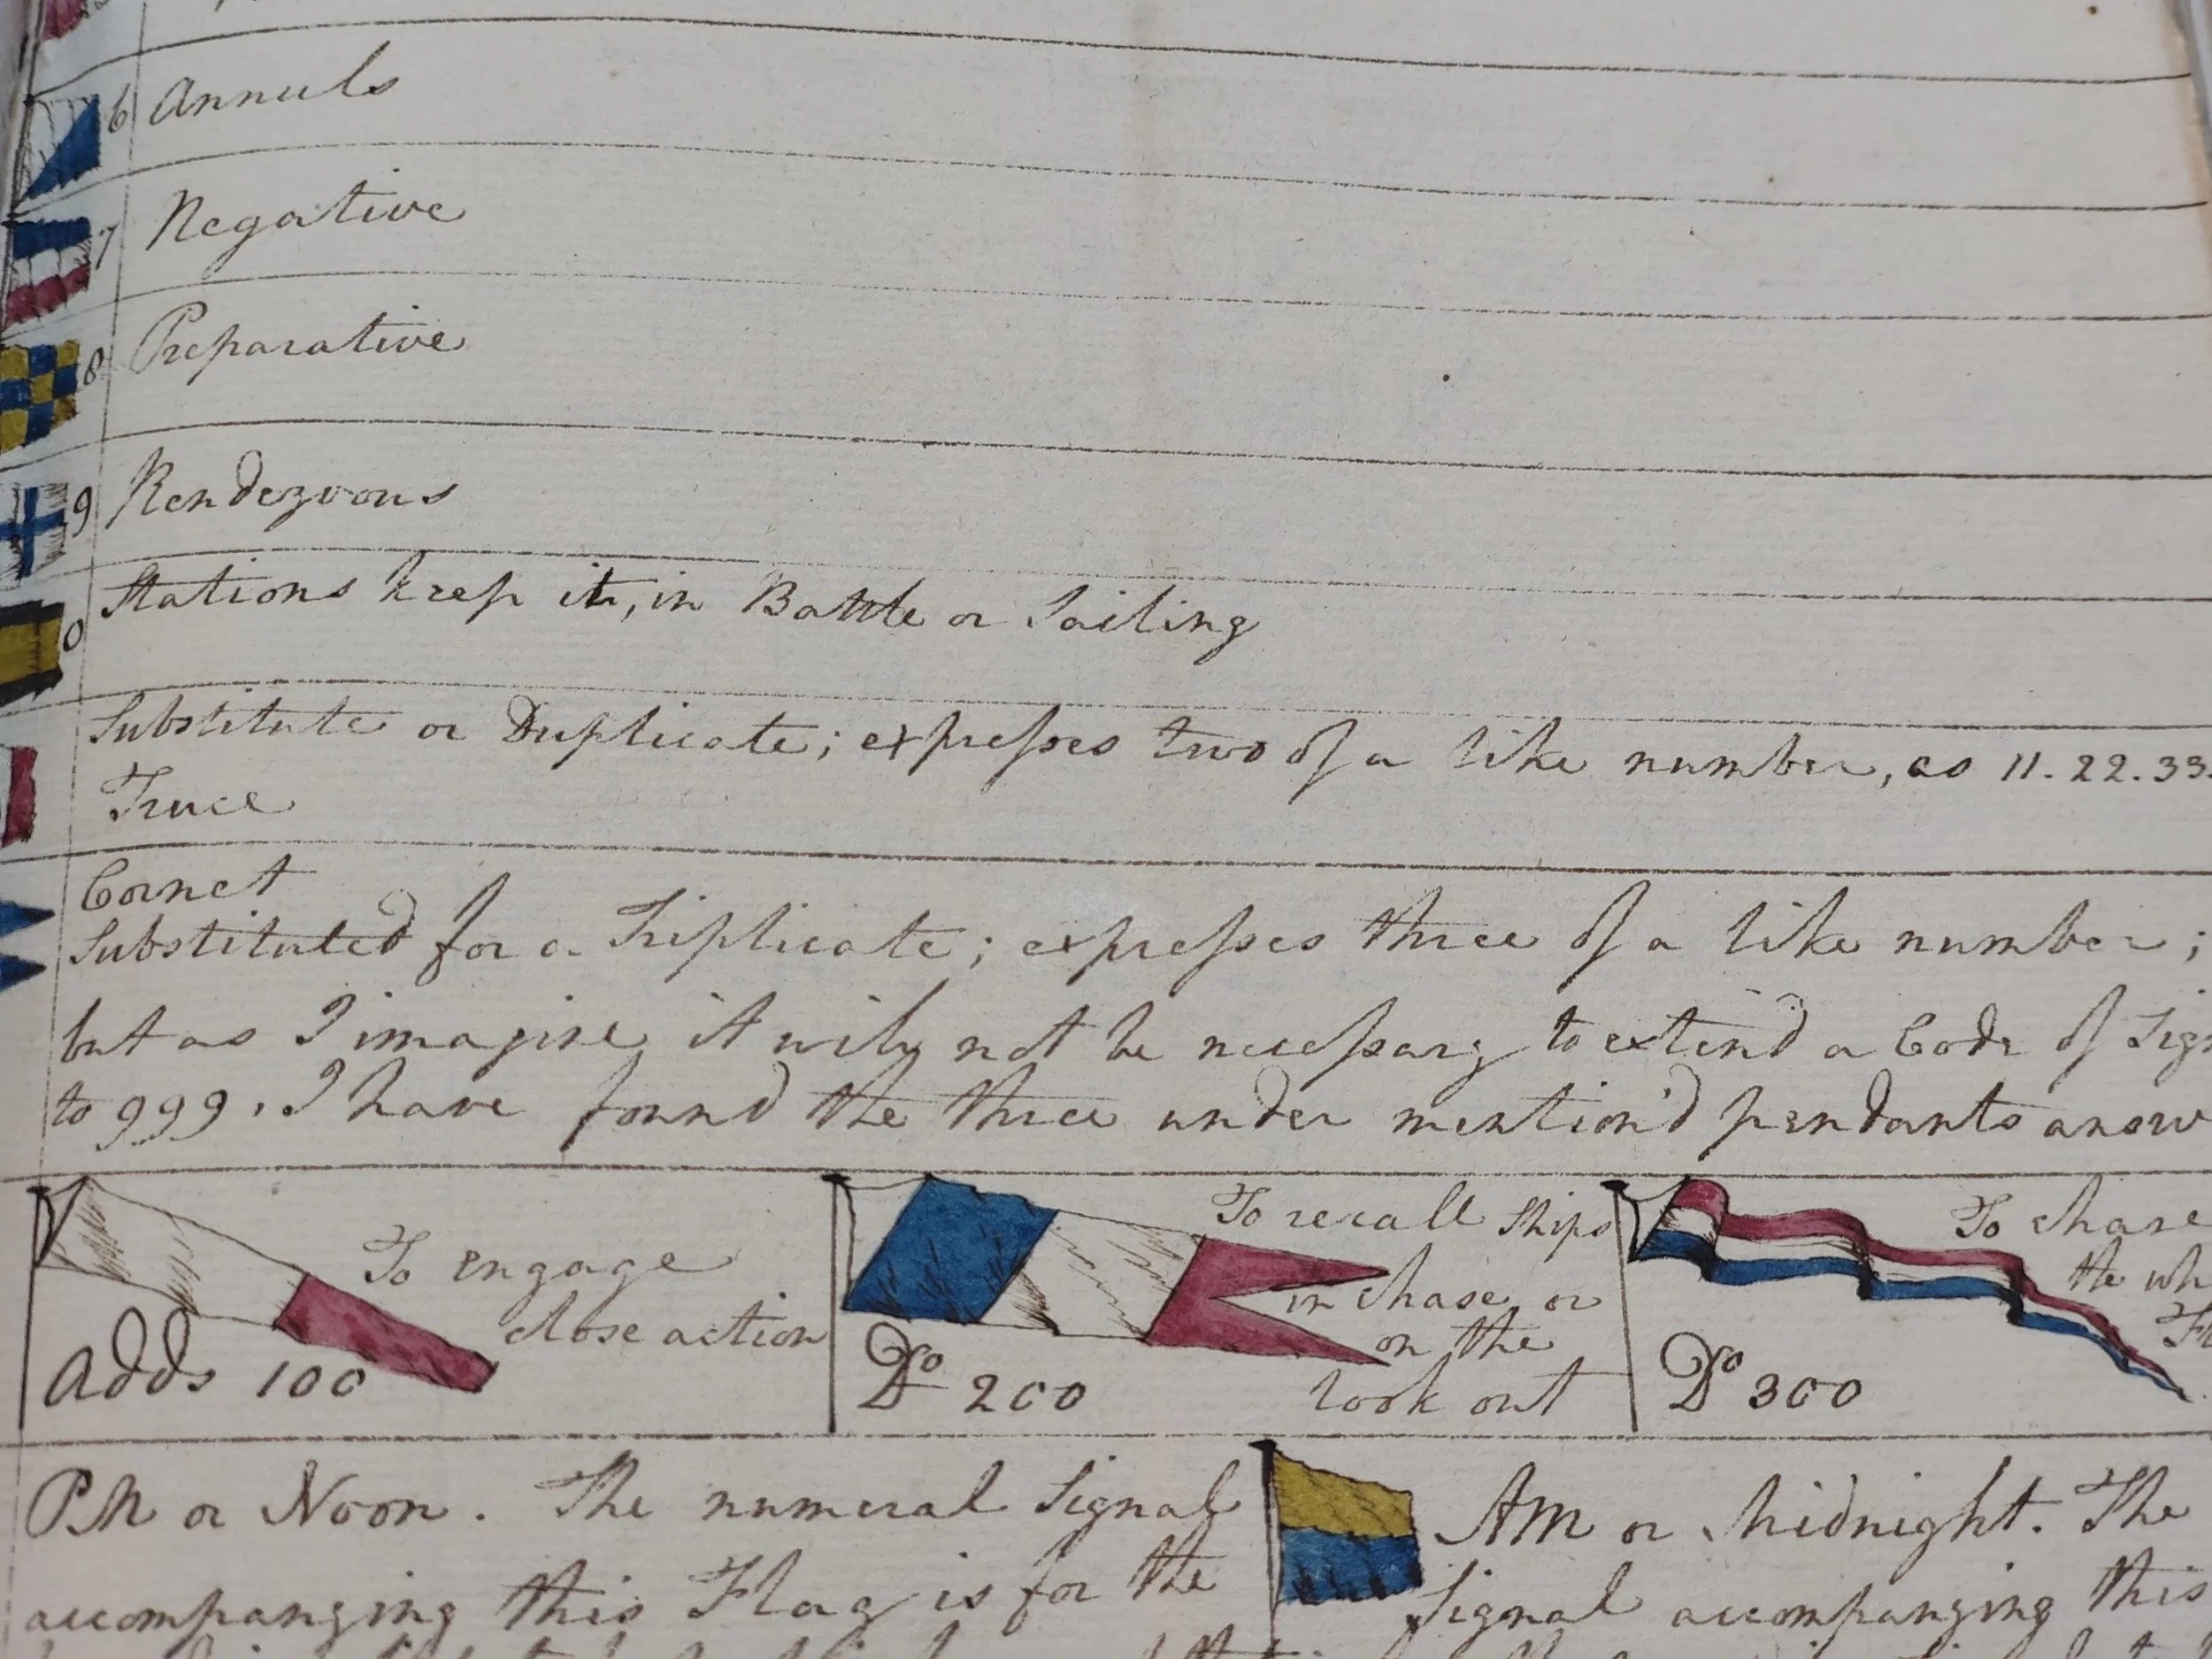 6 Annuls
7 Negative
8 Preparative
9 Rendezvous
0 Stations keep it, in Battle or Sailing
Substitute or Duplicate; expresses two of a like number, as 11. 22. 33.
Truce
Cornet
Substituted for a Triplicate; expresses three of a like number;
but as I imagine it will not be necessary to extend a Code of Sig
to 999, I have found the three under mention'd pendants answ
To engage
close action
Adds 100
To recall Ships
in chase or
on the
look out
Do 200
To chase
the wh
Do 300
PM or Noon. The numeral Signal
accompanying this Flag is for the
AM or Midnight. The
Signal accompanying this